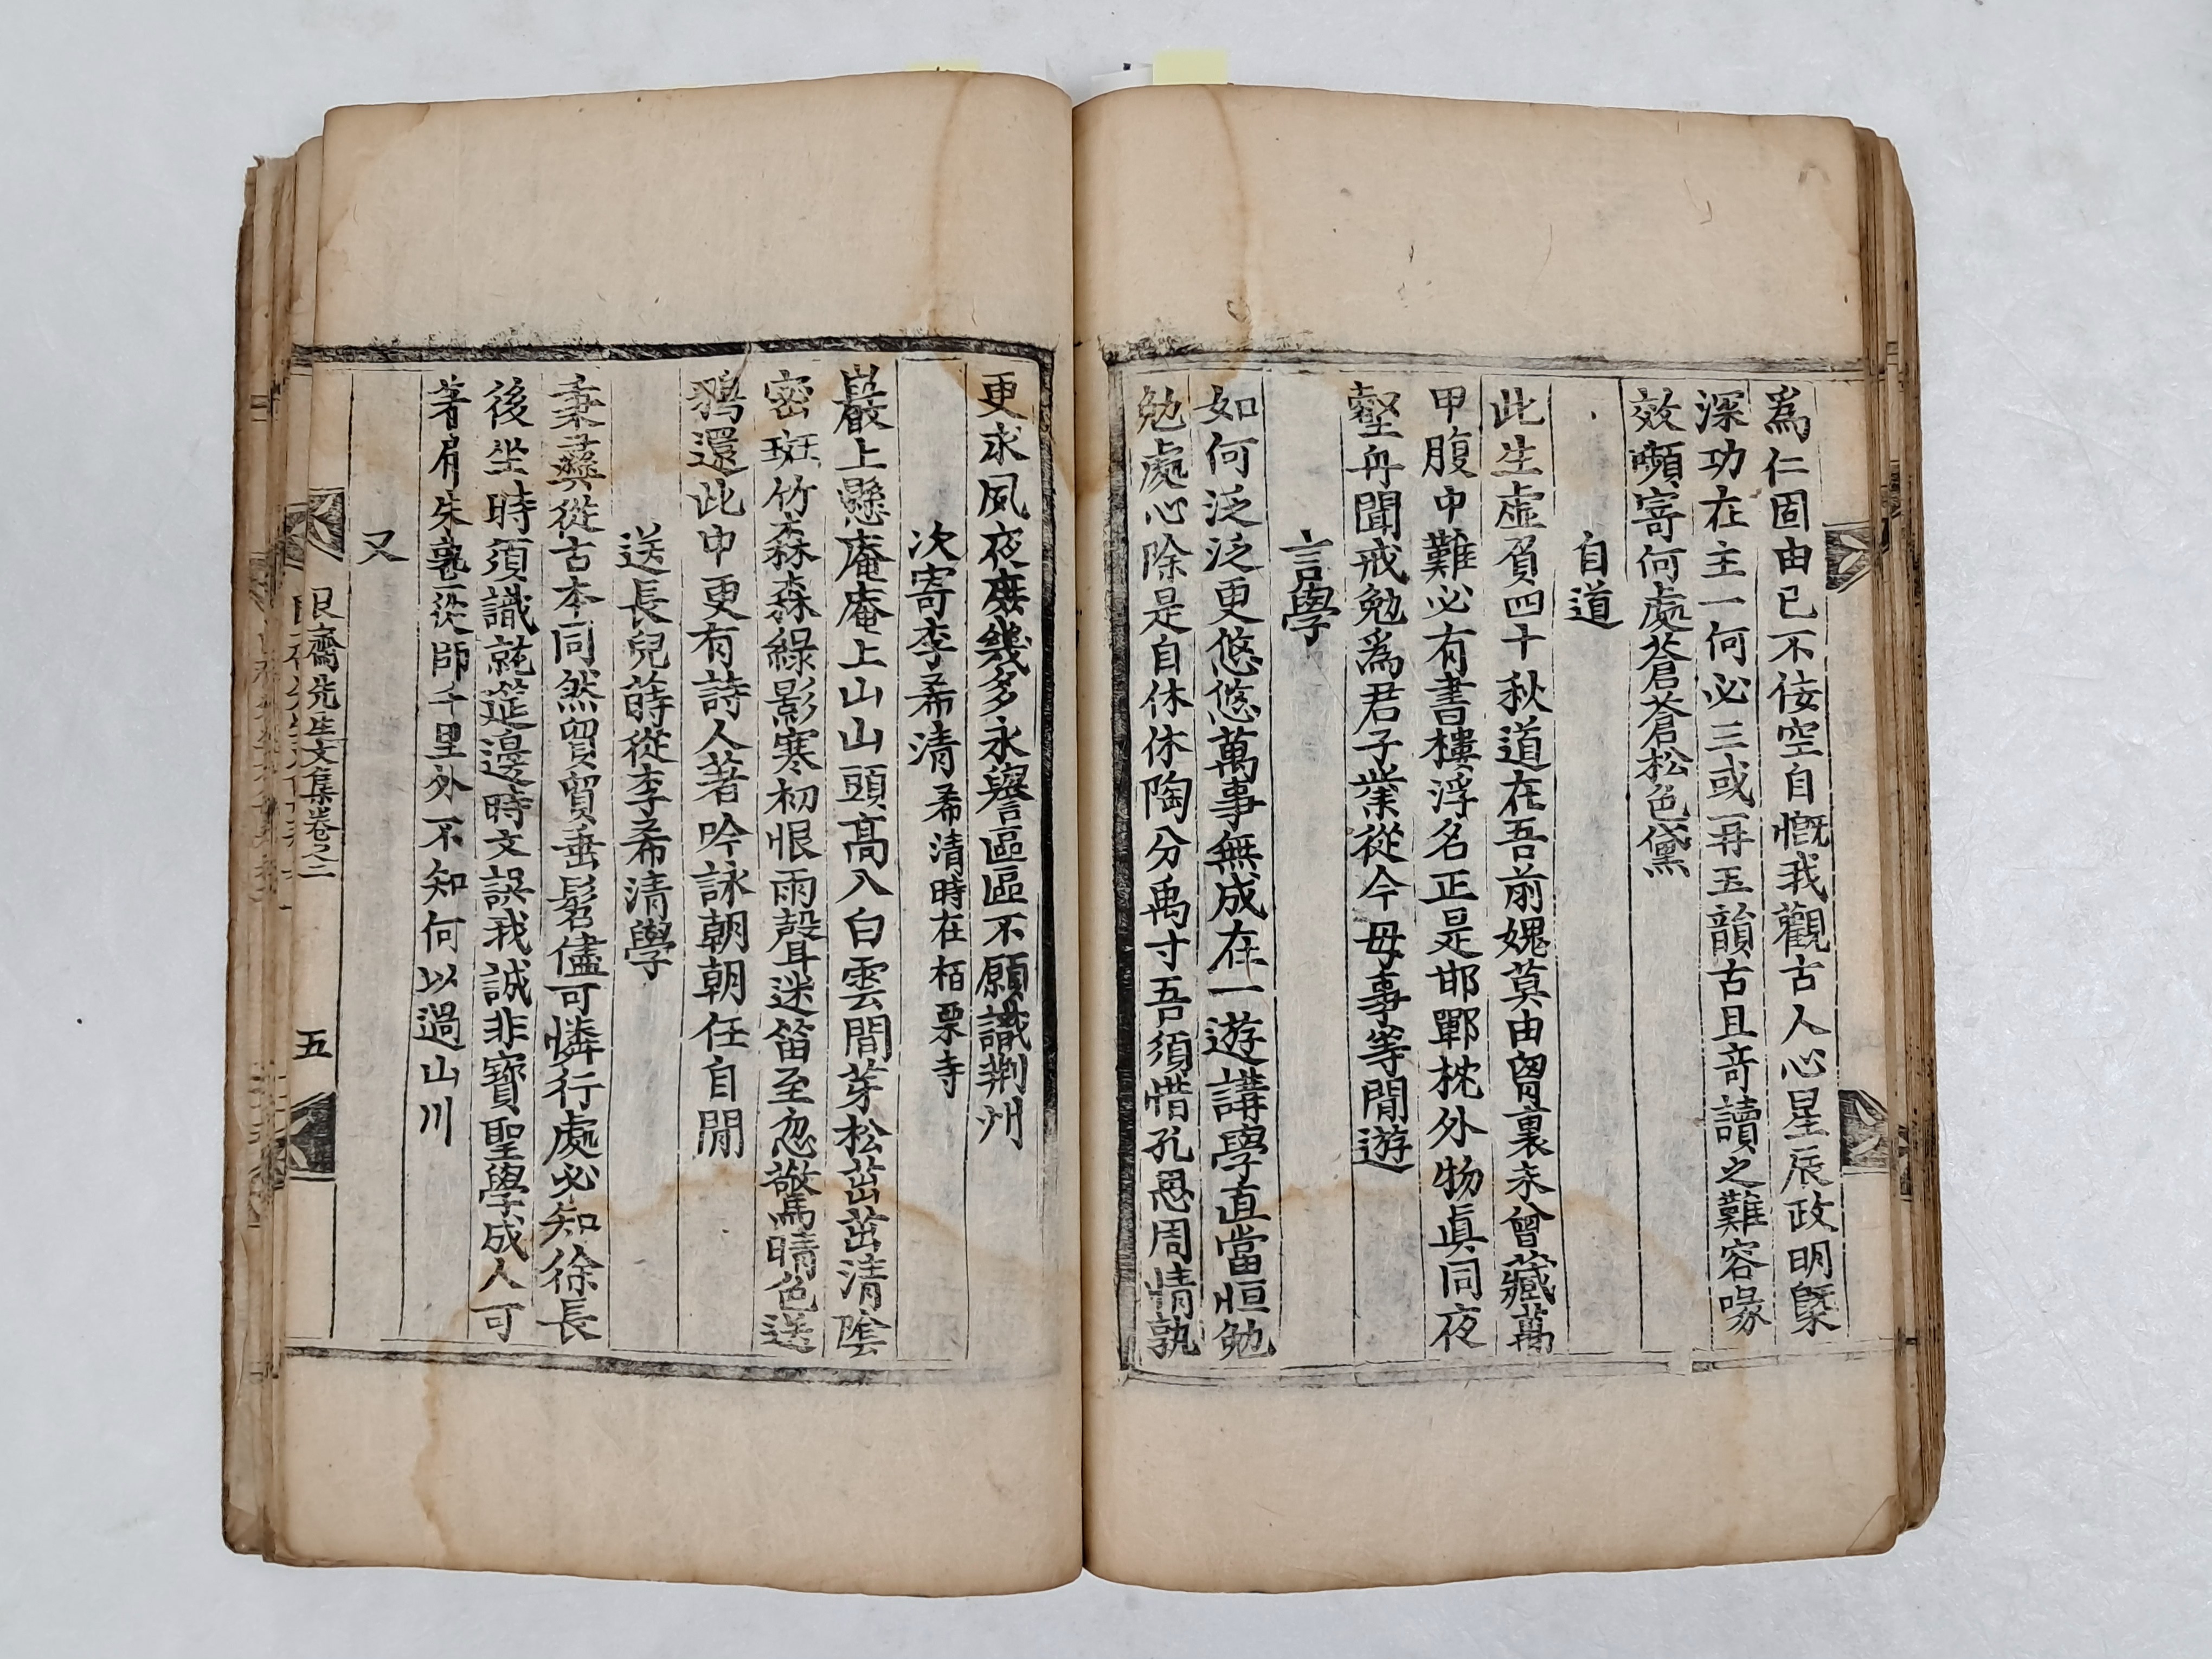 爲仁固由已不侫空自慨我觀古人心星辰政明槩
深功在主一何必三或再玉韻古且奇讀之難容喙
效嚬寄何處蒼蒼松色黛
自道
此生虛負四十秋道在吾前媿莫由胷裏未曾藏萬
甲腹中難必有書樓浮名正是邯鄲枕外物眞同夜
壑舟聞戒勉爲君子業從今毋事等閒遊
言學
如何泛泛更悠悠萬事無成在一遊講學直當恒勉
勉處心除是自休休陶分禹寸吾須惜孔思周情孰
更求夙夜庶幾多永譽區區不願識荆州
次寄李希清希清時在栢栗寺
巖上懸庵庵上山山頭高八白雲間芽松茁茁清陰
密斑竹森森綠影寒初恨雨聲迷笛至忽驚晴色送
鵶還此中更有詩人著吟詠朝朝任自閒
送長兒蒔從李希清學
秉彜從古本同然貿貿垂髫儘可憐行處必知徐長
後坐時須識就筵邊時文誤我誠非寶聖學成人可
著肩朱亳從師千里外不知何以過山川
又
艮齋先生文集卷之二
五